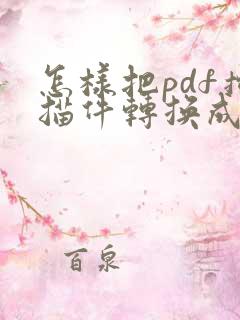 怎樣把pdf掃
描件轉換成
百泉